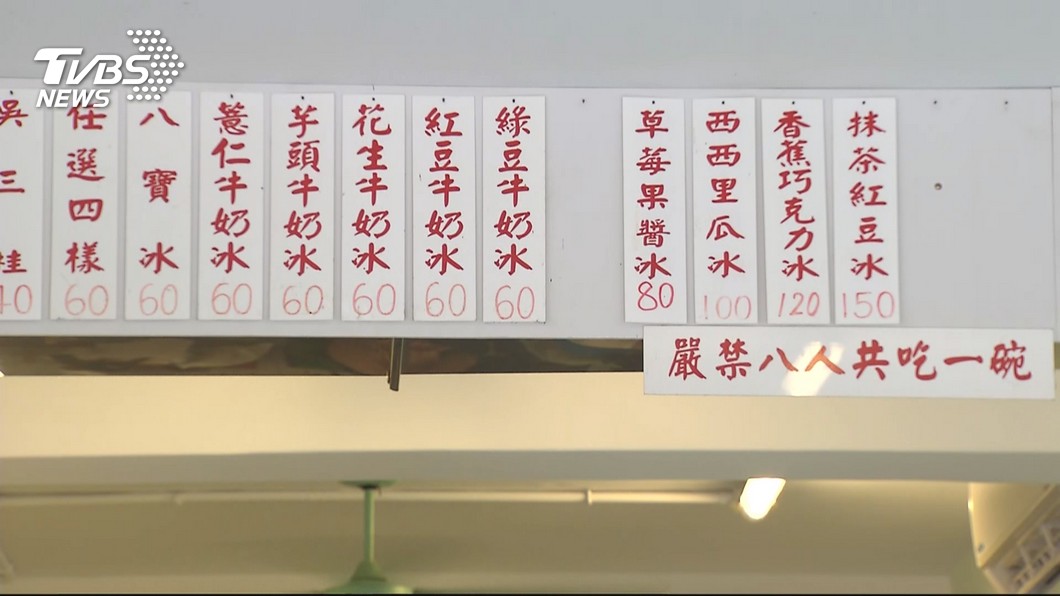 TVBS
NEWS
吳三桂 40
任選四樣 60
八寶冰 60
薏仁牛奶冰 60
芋頭牛奶冰 60
花生牛奶冰 60
紅豆牛奶冰 60
綠豆牛奶冰 60
草莓果醬冰 80
西西里瓜冰 100
香蕉巧克力冰 120
抹茶紅豆冰 150
嚴禁八人共吃一碗